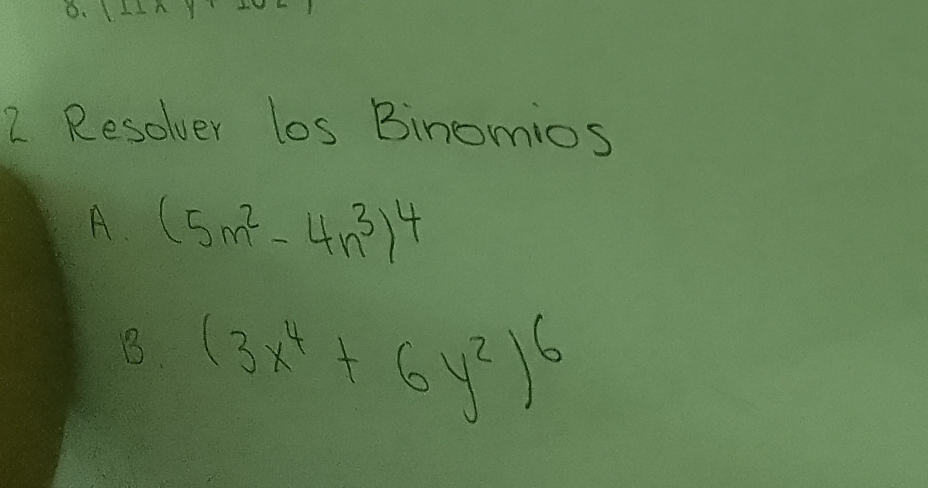 2 Resolver los Binomios
A. (5m² - 4n³)⁴
B. (3x⁴ + 6y²)⁶